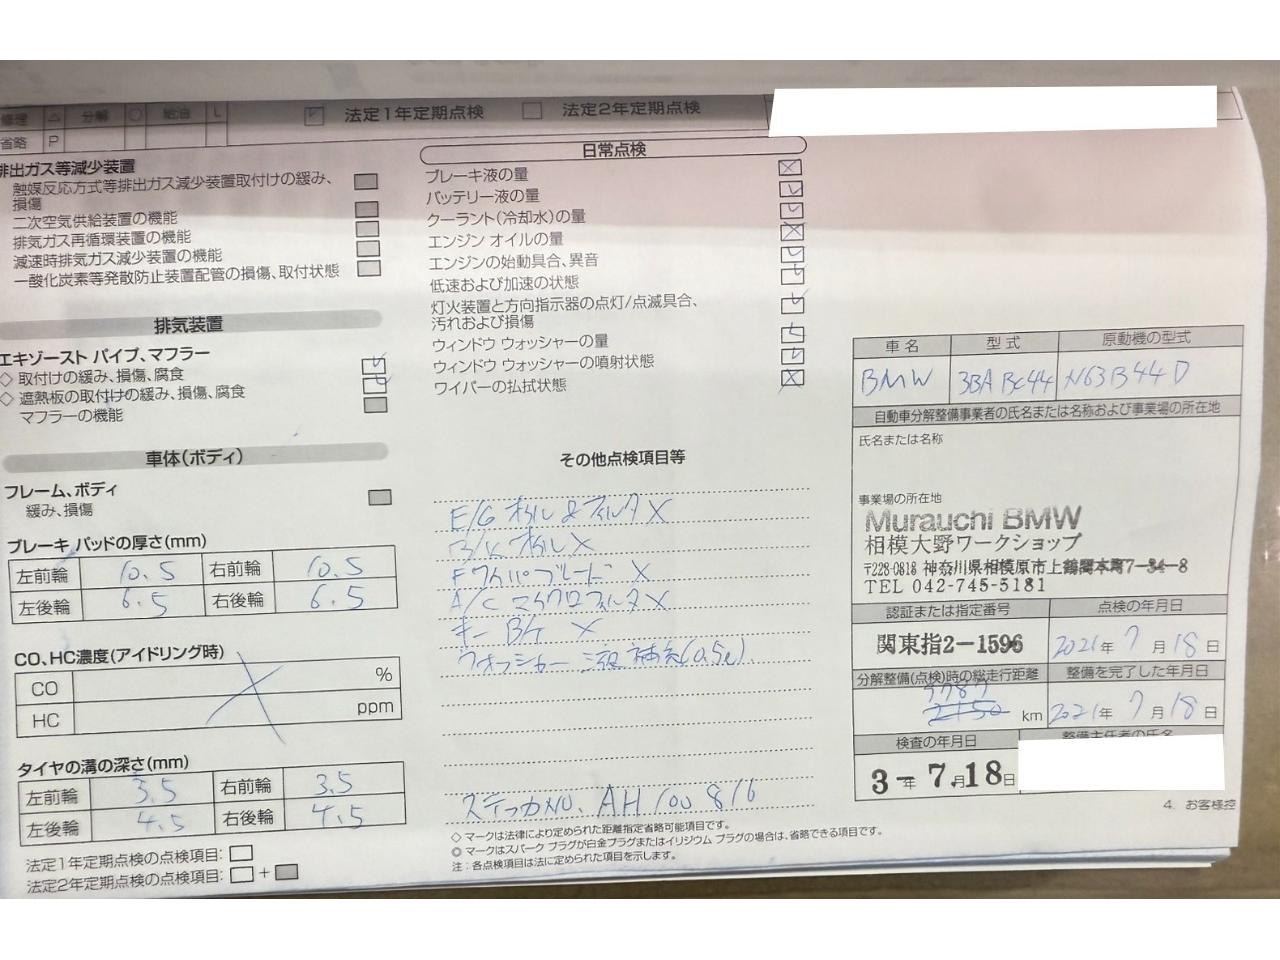 修理 △ 分解 ○ 給油 L
省略 P
☑ 法定1年定期点検 □ 法定2年定期点検
排出ガス等減少装置
触媒反応方式等排出ガス減少装置取付けの緩み、
損傷
二次空気供給装置の機能
排気ガス再循環装置の機能
減速時排気ガス減少装置の機能
一酸化炭素等発散防止装置配管の損傷、取付状態
排気装置
エキゾースト パイプ、マフラー
◇ 取付けの緩み、損傷、腐食
◇ 遮熱板の取付けの緩み、損傷、腐食
マフラーの機能
車体(ボディ)
フレーム、ボディ
緩み、損傷
ブレーキ パッドの厚さ(mm)
左前輪 10.5 右前輪 10.5
左後輪 6.5 右後輪 6.5
CO、HC濃度(アイドリング時)
CO %
HC ppm
タイヤの溝の深さ(mm)
左前輪 3.5 右前輪 3.5
左後輪 4.5 右後輪 4.5
法定1年定期点検の点検項目: □
法定2年定期点検の点検項目: □ +
日常点検
ブレーキ液の量
バッテリー液の量
クーラント(冷却水)の量
エンジン オイルの量
エンジンの始動具合、異音
低速および加速の状態
灯火装置と方向指示器の点灯/点滅具合、
汚れおよび損傷
ウィンドウ ウォッシャーの量
ウィンドウ ウォッシャーの噴射状態
ワイパーの払拭状態
その他点検項目等
E/G オイル & フィルタ X
B/K オイル X
F ワイパーブレード X
A/C マイクロフィルタ X
キー B/T X
ウォッシャー 液 補充(0.5ℓ)
ステッカNo. AH 100 816
◇ マークは法律により定められた距離指定省略可能項目です。
◎ マークはスパーク プラグが白金プラグまたはイリジウム プラグの場合は、省略できる項目です。
注：各点検項目は法に定められた項目を示します。
車 名 型 式 原動機の型式
BMW 3BA BC44 N63B44D
自動車分解整備事業者の氏名または名称および事業場の所在地
氏名または名称
事業場の所在地
Murauchi BMW
相模大野ワークショップ
〒228-0818 神奈川県相模原市上鶴間本町7-34-8
TEL 042-745-5181
認証または指定番号 点検の年月日
関東指2-1596 2021年 7月 18日
分解整備(点検)時の総走行距離 整備を完了した年月日
7787
2150 km 2021年 7月 18日
検査の年月日 整備主任者の氏名
3年 7月18日
4. お客様控